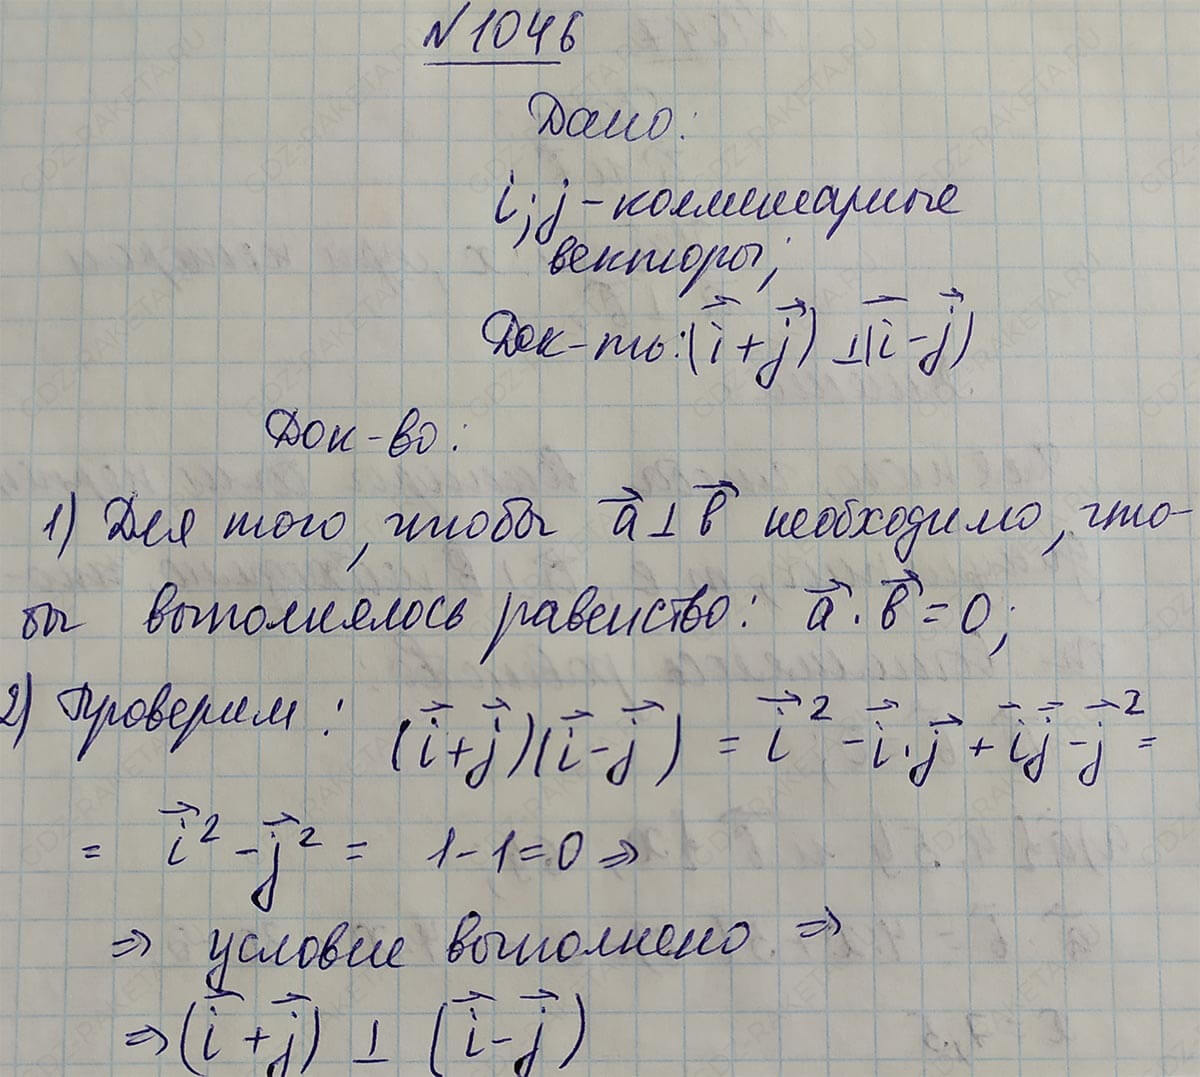 №1046
Дано:
i; j - коллинеарные
векторы;
Док-ть: (i⃗ + j⃗) ⊥ (i⃗ - j⃗)
Док-во:
1) Для того, чтобы a⃗ ⊥ b⃗ необходимо, что-
бы выполнялось равенство: a⃗ · b⃗ = 0;
2) Проверим: (i⃗ + j⃗)(i⃗ - j⃗) = i⃗² - i⃗ · j⃗ + i⃗j⃗ - j⃗² =
= i⃗² - j⃗² = 1 - 1 = 0 ⇒
⇒ условие выполнено ⇒
⇒ (i⃗ + j⃗) ⊥ (i⃗ - j⃗)
GDZ-RAKETA.RU